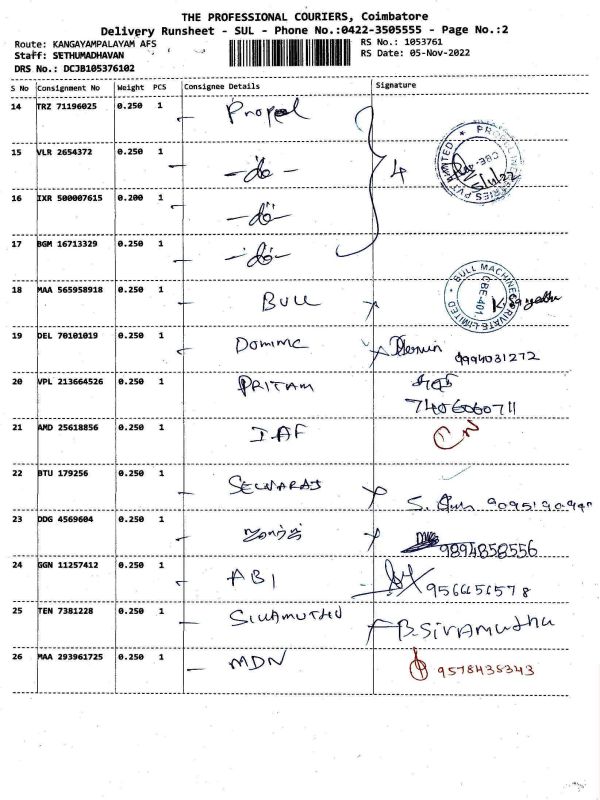 THE PROFESSIONAL COURIERS, Coimbatore
Delivery Runsheet - SUL - Phone No.:0422-3505555 - Page No.:2
Route: KANGAYAMPALAYAM AFS RS No.: 1053761
Staff: SETHUMADHAVAN RS Date: 05-Nov-2022
DRS No.: DCJB105376102
S No Consignment No Weight PCS Consignee Details Signature
14 TRZ 71196025 0.250 1 Propel
15 VLR 2654372 0.250 1 -do- 4
16 IXR 500007615 0.200 1 -do-
17 BGM 16713329 0.250 1 -do-
18 MAA 565958918 0.250 1 BULL
BULL MACHINES PRIVATE LIMITED
CBE-401
19 DEL 70101019 0.250 1 9994031272
20 VPL 213664526 0.250 1 PRITAM
7406060711
21 AMD 25618856 0.250 1 IAF CN
22 BTU 179256 0.250 1 SELVARAJ
23 DDG 4569604 0.250 1 9894858556
24 GGN 11257412 0.250 1 ABI 956656578
25 TEN 7381228 0.250 1 SIVAMUTHU B.Sivamuthu
26 MAA 293961725 0.250 1 MDN 9578438343